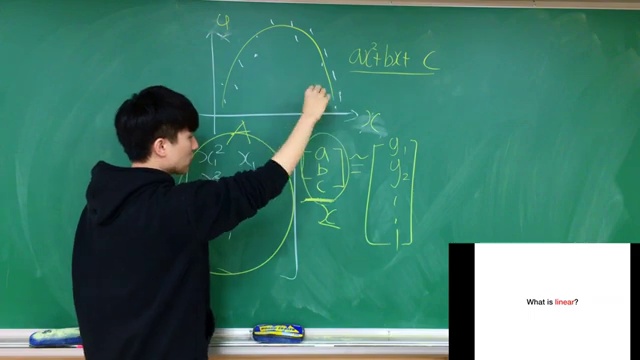 y
ax²+bx+ c
x
A
x₁² x₁
a
b
c
x
≅
y₁
y₂
What is linear?